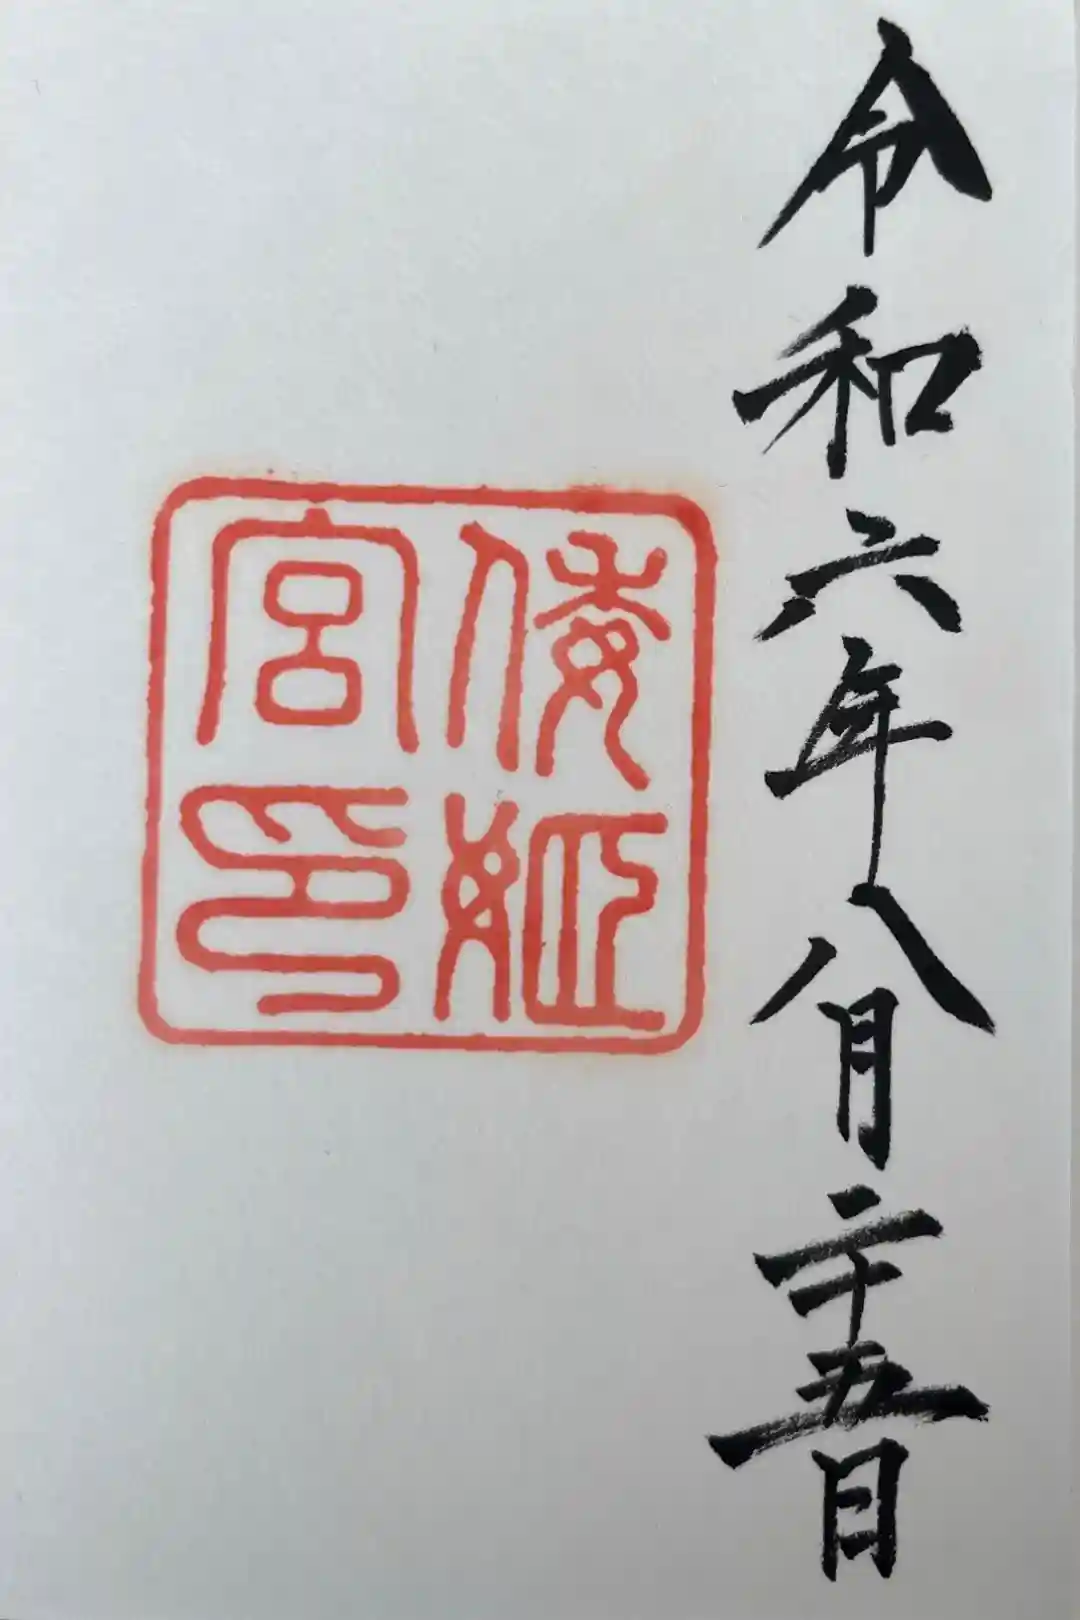 令和六年八月二十五日
倭姫
宮印